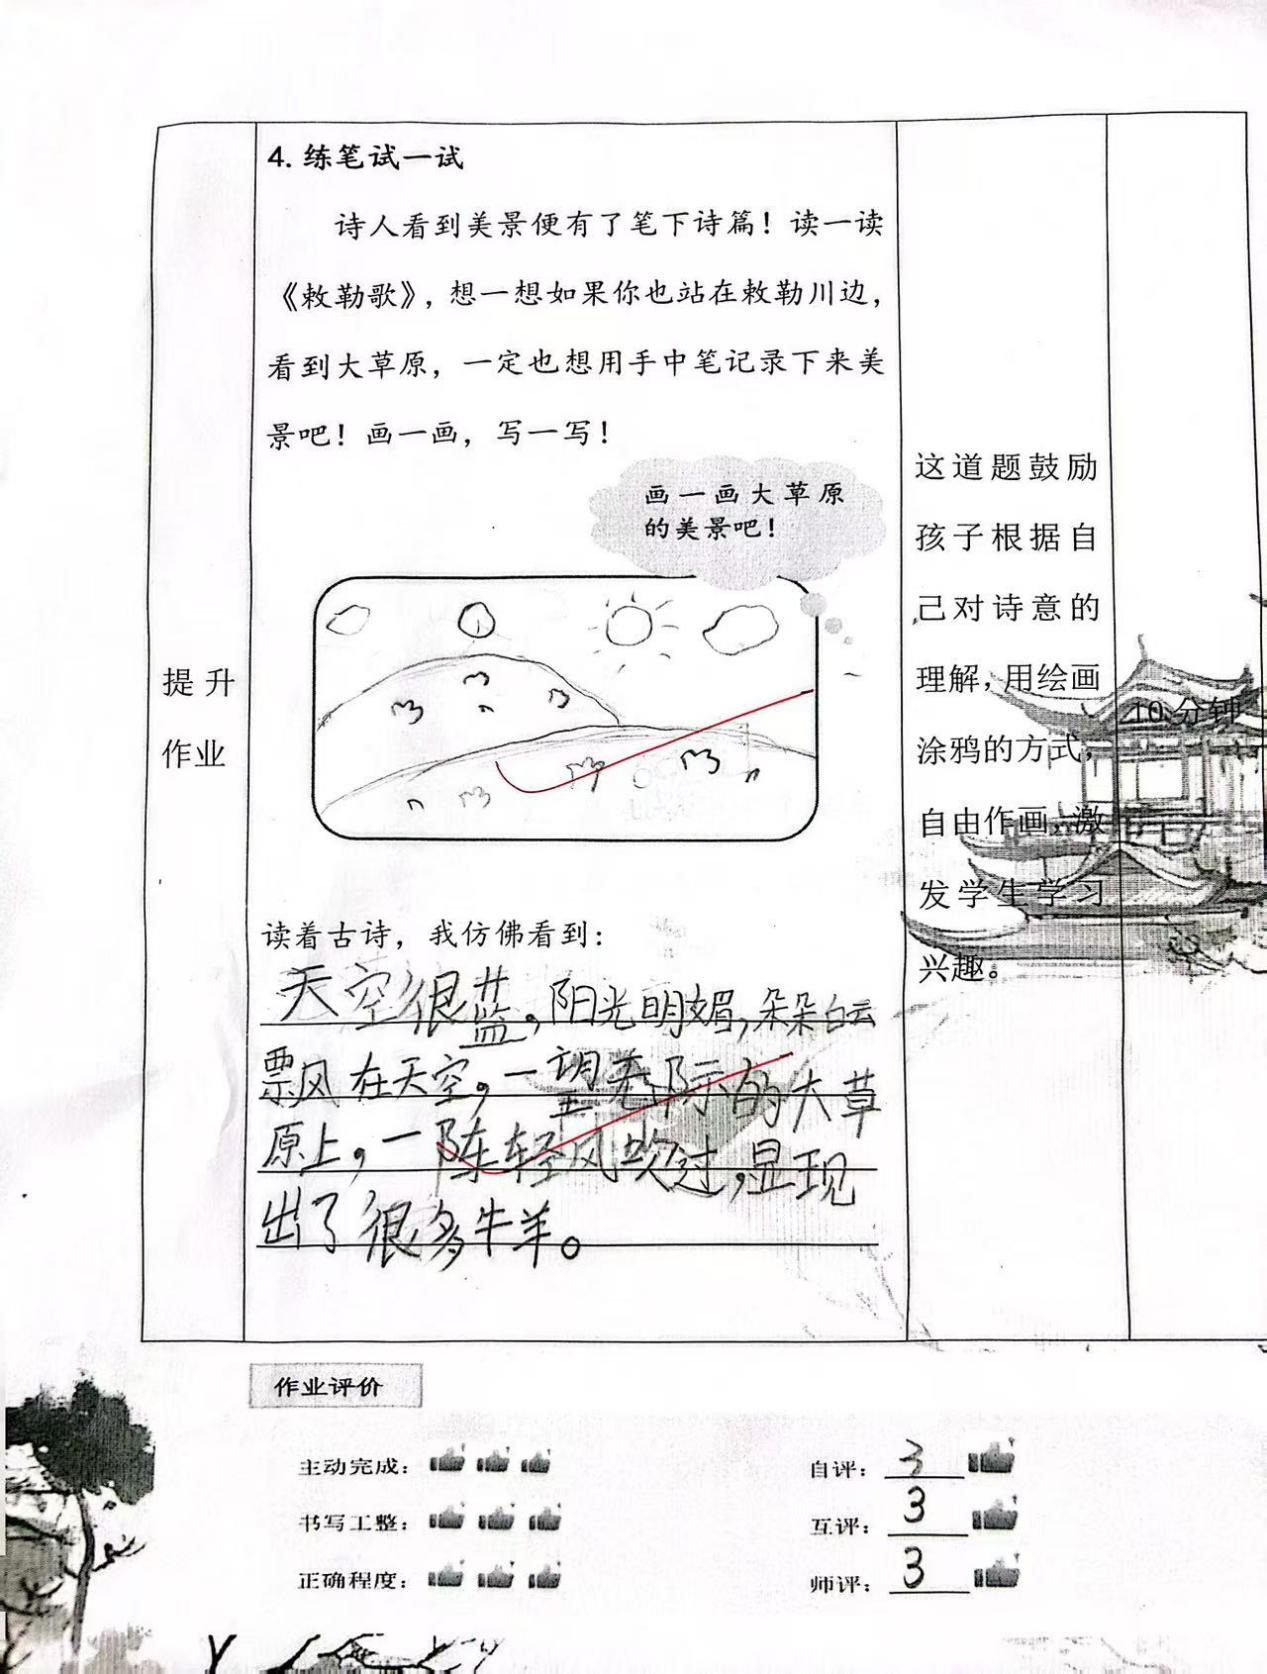 4. 练笔试一试
诗人看到美景便有了笔下诗篇！读一读
《敕勒歌》，想一想如果你也站在敕勒川边，
看到大草原，一定也想用手中笔记录下来美
景吧！画一画，写一写！
画一画大草原
的美景吧！
提升
作业
读着古诗，我仿佛看到：
天空很蓝，阳光明媚，朵朵白云
票风在天空。一望无际的大草
原上，一阵轻风吹过，显现
出了很多牛羊。
这道题鼓励
孩子根据自
己对诗意的
理解，用绘画
涂鸦的方式，
自由作画，激
发学生学习
兴趣。
10 分钟
作业评价
主动完成：
书写工整：
正确程度：
自评：3
互评：3
师评：3